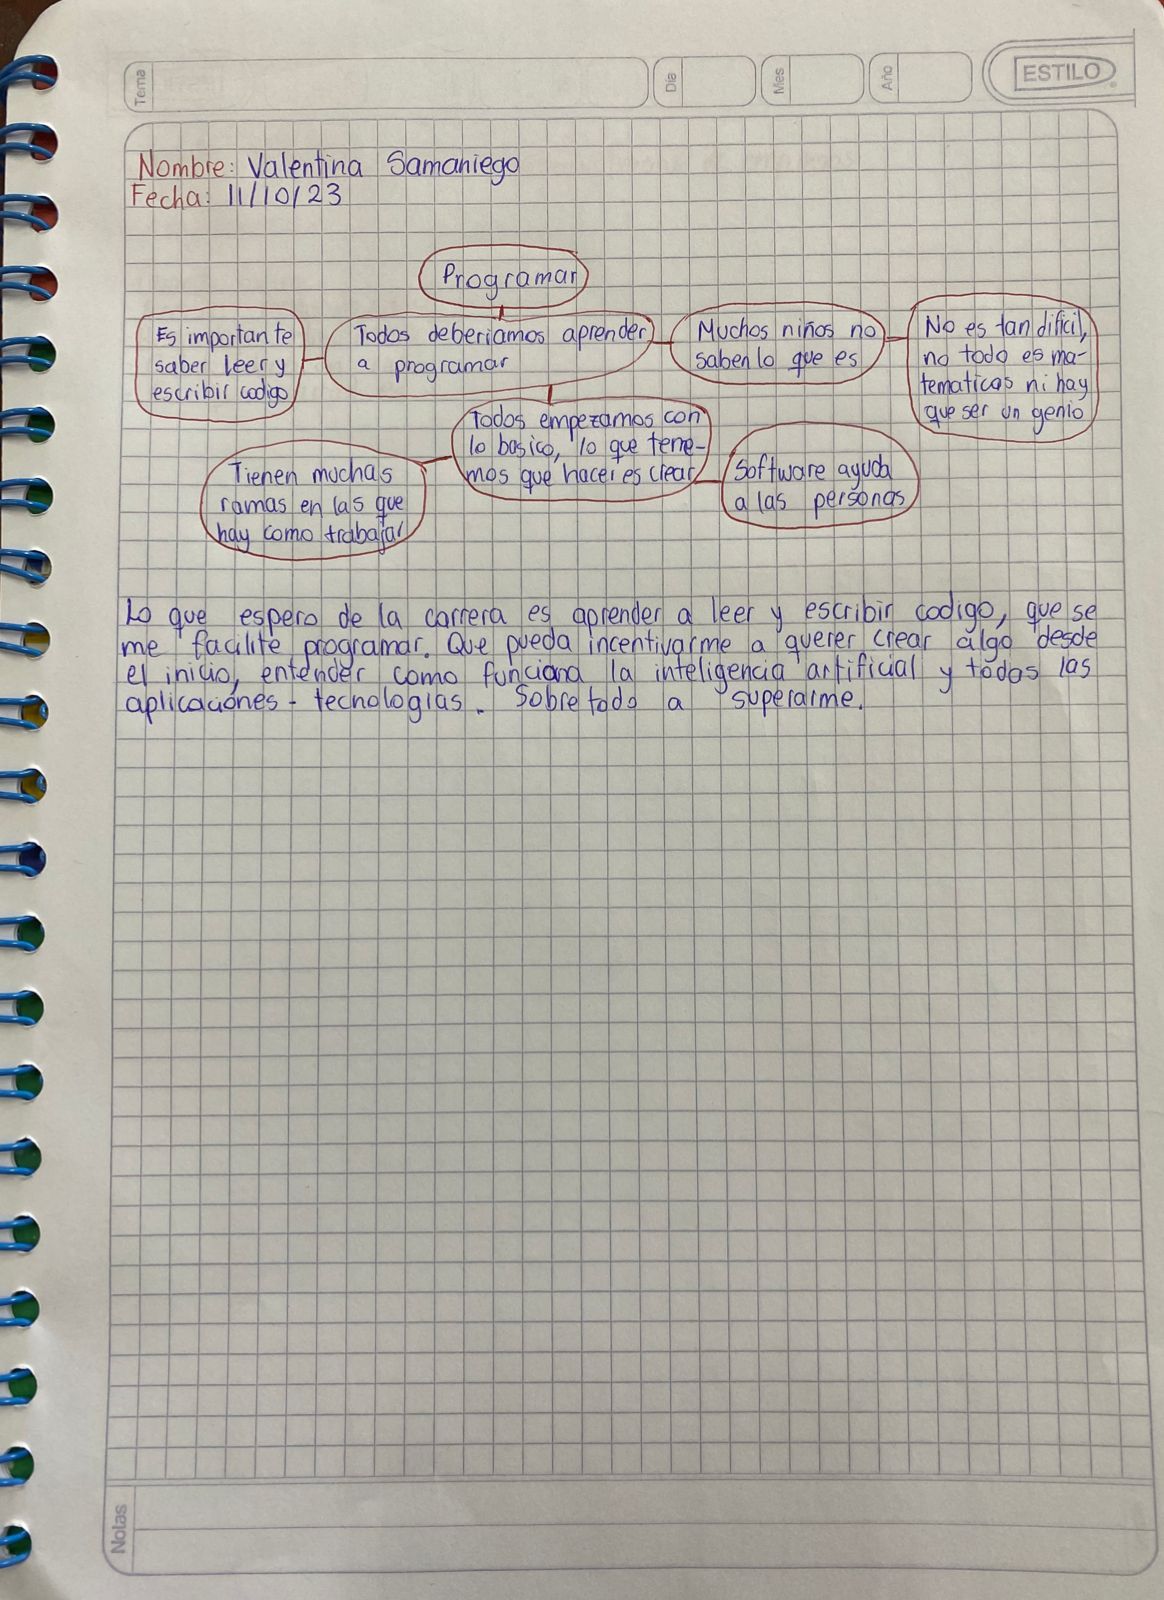 Tema
Día
Mes
Año
ESTILO
Nombre: Valentina Samaniego
Fecha: 11/10/23
Programar
Es importante
saber leer y
escribir codigo
Todos deberiamos aprender
a programar
Muchos niños no
saben lo que es
No es tan dificil,
no todo es ma-
tematicas ni hay
que ser un genio
Todos empezamos con
lo basico, lo que tene-
mos que hacer es crear
Tienen muchas
ramas en las que
hay como trabajar
Software ayuda
a las personas
Lo que espero de la carrera es aprender a leer y escribir codigo, que se
me facilite programar. Que pueda incentivarme a querer crear algo desde
el inicio, entender como funciona la inteligencia artificial y todos las
aplicaciones - tecnologias. Sobretodo a superarme.
Notas